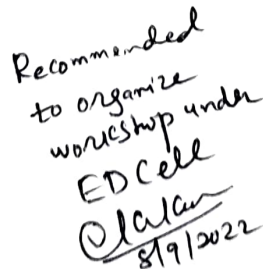 Recommended
to organize
workshop under
ED Cell
8/9/2022